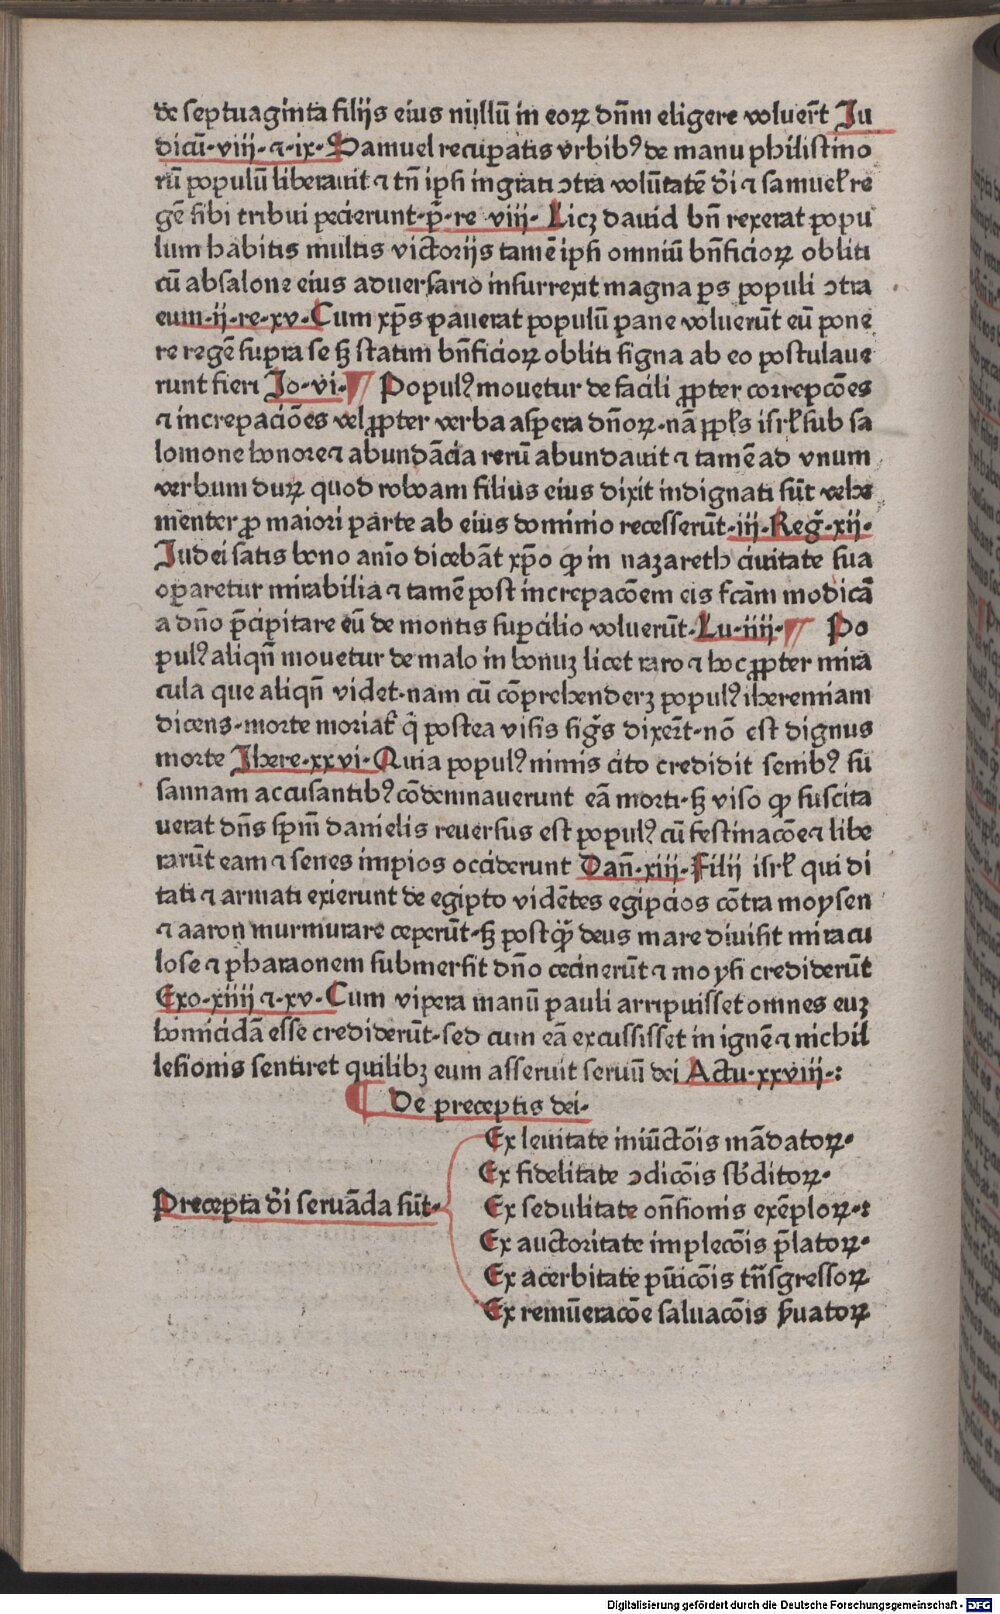 de septuaginta filijs eius nullū in eoꝝ dn̄m eligere voluer̄t Ju
dicū·viij·⁊·ix·Samuel recuperatis vrbibꝰ de manu philistino
rū populū liberauit ⁊ tn̄ ipsi ingrati ↄtra volūtatē dī ⁊ samueł re
gē sibi tribui pecierunt·p̄·re viij· Licꝫ dauid bn̄ rexerat popu
lum habitis multis victorijs tamē ipsi omniū bn̄ficioꝝ obliti
cū absalone eius aduersario insurrexit magna ꝑs populi ↄtra
eum·ij·re·xv·Cum xp̄s pauerat populū pane voluerūt eū pone
re regē supra se sꝫ statim bn̄ficioꝝ obliti signa ab eo postulaue
runt fieri Jo·vi·¶ Populꝰ mouetur de facili ꝓpter correpcōes
⁊ increpaciōes vel ꝓpter verba aspera dn̄oꝝ·nā ꝓpłs isrł sub sa
lomone honore ⁊ abundācia rerū abundauit ⁊ tamē ad vnum
verbum duꝝ quod roboam filius eius dixit indignati sūt vehe
menter ꝓ maiori parte ab eius dominio recesserūt·iij·Reḡ·xij·
Judei satis bono anīo dicebāt xp̄o ꝙ in nazareth ciuitate sua
operaretur mirabilia ⁊ tamē post increpacōem eis fcām modicā
a dn̄o p̄cipitare eū de montis suꝑcilio voluerūt·Lu·iiij·¶ Po
pulꝰ aliqn̄ mouetur de malo in bonuꝫ licet raro ⁊ hoc ꝓpter mira
cula que aliqn̄ videt·nam cū cōprehenderꝫ populꝰ iheremiam
dicens·morte moriat᷑ q̄ postea visis siḡs dixer̄t·nō est dignus
morte Jhere·xxvi·Quia populꝰ nimis cito credidit senibꝰ su
sannam accusantibꝰ cōdemnauerunt eā morti·sꝫ viso ꝙ suscita
uerat dn̄s spm̄ danielis reuersus est populꝰ cū festinacōe ⁊ libe
rarūt eam ⁊ senes impios occiderunt Dan̄·xiij·Filij isrł qui di
tati ⁊ armati exierunt de egipto vidētes egipcios cōtra moysen
⁊ aaron murmurare ceperūt·sꝫ postꝙ̄ deus mare diuisit miracu
lose ⁊ pharaonem submersit dn̄o cecinerūt ⁊ moysi crediderūt
Exo·xiiij ⁊·xv·Cum vipera manū pauli arripuisset omnes euꝫ
homicidā esse crediderūt·sed cum eā excussisset in ignē ⁊ nichil
lesionis sentiret quilibꝫ eum asseruit seruū dei Actu·xxviij·:
¶ De preceptis dei·
Ex leuitate iniūctōis mādatoꝝ·
Ex fidelitate ↄdicōis sb̄ditoꝝ·
Precepta dī seruāda sūt· Ex sedulitate on̄sionis exēploꝝ·:
Ex auctoritate implecōis p̄latoꝝ·
Ex acerbitate pūicōis trn̄sgressoꝝ
Ex remūeracōe saluacōis ẜuatoꝝ
Digitalisierung gefördert durch die Deutsche Forschungsgemeinschaft - DFG